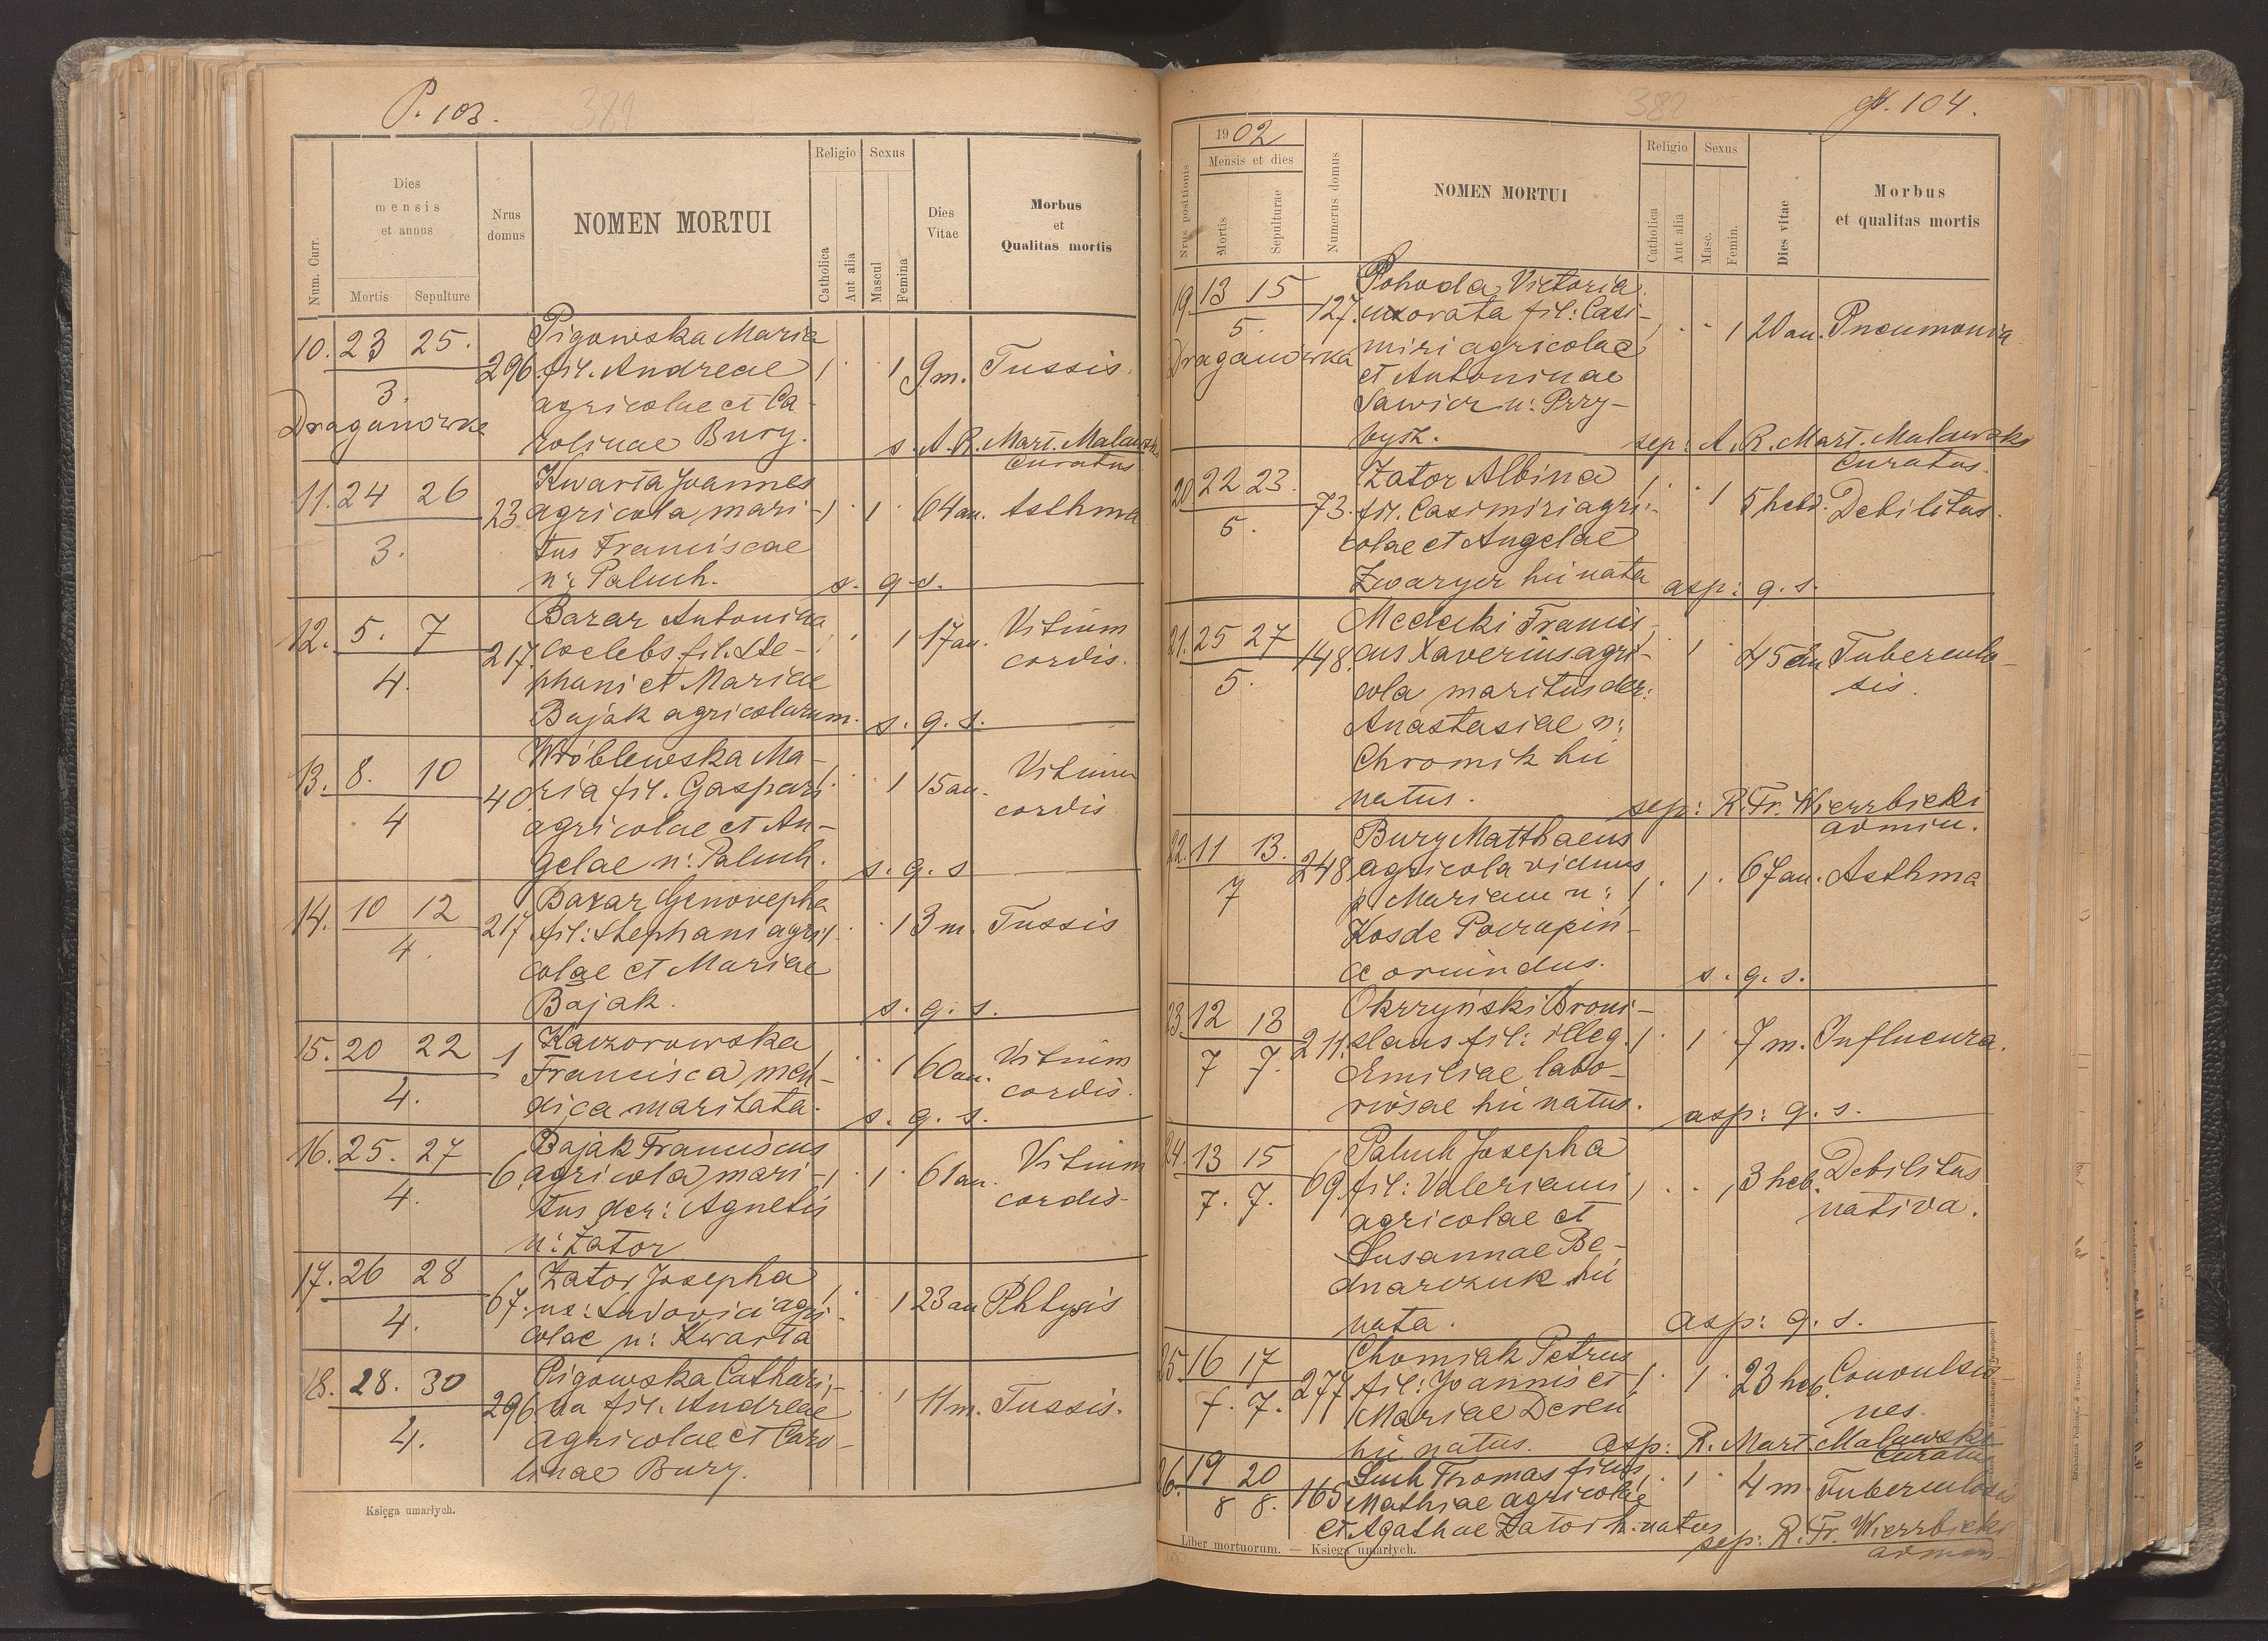 P. 103.
381
Num. Curr.
Dies mensis et annus
Mortis
Sepulture
Nrus domus
NOMEN MORTUI
Religio
Catholica
Aut alia
Sexus
Mascul
Femina
Dies Vitae
Morbus et Qualitas mortis
10. 23 25. Pigowska Maria
296. fil. Andreae 1 1 9 m. Tussis.
3. agricolae et Ca-
Draganówka rolinae Bury. s. A. R. Mart. Malawski
curatus
11. 24 26 Kwarta Joannes
23 agricola mari- 1 1 64 an. Asthma
3. tus Franciscae
n: Paluch. s. q. s.
12. 5. 7 Bazar Antonina
217. coelebs. fil. Ste- 1 17 an. Vitium
4. phani et Mariae cordis.
Bajak agricolarum. s. q. s.
13. 8. 10 Wróblewska Ma-
40. ria fil. Gaspari 1 15 an. Vitium
4 agricolae et An- cordis
gelae n: Paluch. s. q. s
14. 10 12 Bazar Genovepha
217 fil: Stephani agri- 1 3 m. Tussis
4. colae et Mariae
Bajak. s. q. s.
15. 20 22 1 Kaczorowska
Francisca men- 1 60 an. Vitium
4. dica maritata. cordis.
s. q. s.
16. 25. 27 Bajak Franciscus
6. agricola mari- 1 1 61 an. Vitium
4. tus der: Agnetis cordis-
n: Zator
17. 26 28 Zator Josepha
67. ux: Ludovici agri- 1 23 an Phtysis
4. colae n: Kwarta
18. 28. 30 Pigowska Cathari-
296. na fil. Andreae 1 11 m. Tussis.
4. agricolae et Caro-
linae Bury.
Księga umarłych.
382
P. 104.
Nrus positionis
1902
Mensis et dies
Mortis
Sepulturae
Numerus domus
NOMEN MORTUI
Religio
Catholica
Aut alia
Sexus
Masc.
Femin.
Dies vitae
Morbus et qualitas mortis
19. 13 15 Pohoda Victoria
127. uxorata fil: Casi- 1 20 an. Pneumonia
5. miri agricolae
Draganówka et Antoninae
Sawicz n: Przy-
bysz. sep: A. R. Mart. Malawski
curatus.
20 22 23. Zator Albina
73. fil. Casimiri agri- 1 1 5 hebd. Debilitas.
5. colae et Angelae
Zwarycz hii nata asp: q. s.
21. 25 27 Medecki Francis-
148. cus Xaverius agri- 1 45 an Tuberculo-
5. cola maritus der: sis.
Anastasiae n:
Chromik hii
natus. sep: R. Fr. Wierzbicki
admin.
22. 11 13. Bury Matthaeus
248 agricola viduus
7 p. Mariam n: 1 1 67 an. Asthma
Kos de Poczapin-
ce oriundus. s. q. s.
23. 12 13 Okrzyński Broni-
211. slaus fil: illeg. 1 1 7 m. Influenza.
7 7. Emiliae labo-
riosae hii natus. asp: q. s.
24. 13 15 Paluch Josepha
69. fil: Valeriani 1 1 3 heb. Debilitas
7. 7. agricolae et nativa.
Susannae Be-
dnarczuk hii
nata. asp: q. s.
25. 16 17 Chomiak Petrus
277 fil: Joannis et 1 1 23 heb. Convulsio-
7. 7. Mariae Deren nes.
hii natus. asp: R. Mart Malawski
curatus
26. 19 20 Such Thomas filius
165 Mathiae agricolae 1 1 4 m. Tuberculosis
8 8. et Agathae Zator h. natus
sep: R. Fr. Wierzbicki
admin-
Liber mortuorum. — Księga umarłych.